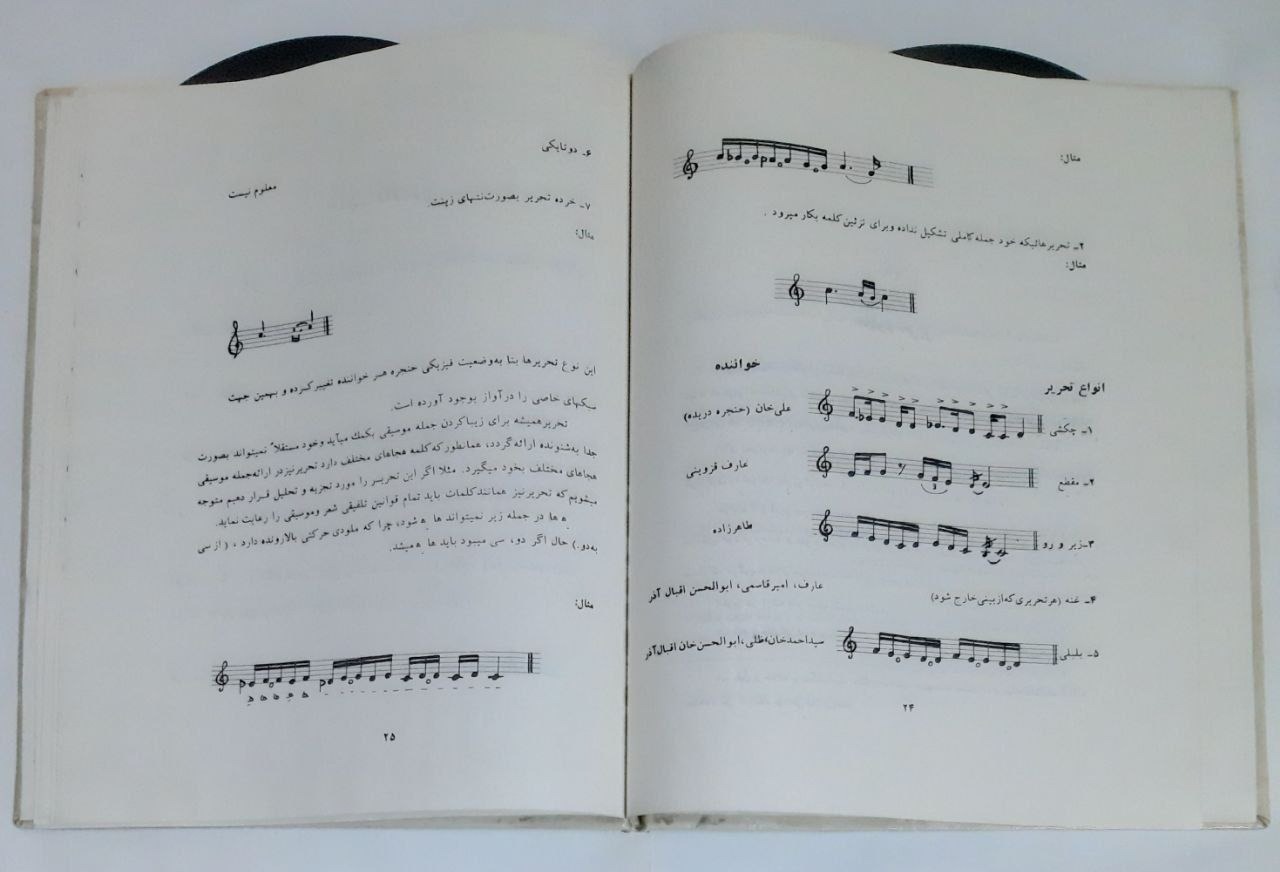 مثال:
۲ـ تحریرهائیکه خود جمله کاملی تشکیل نداده وبرای تزئین کلمه بکار میرود .
مثال:
انواع تحریر
خواننده
۱ـ چکشی
علی‌خان (حنجره دریده)
۲ـ مقطع
عارف قزوینی
۳ـ زیر و رو
طاهرزاده
۴ـ غنه (هرتحریری که از بینی خارج شود)
عارف، امیرقاسمی، ابوالحسن اقبال آذر
۵ـ بلبلی
سیداحمدخان، ظلی، ابوالحسن‌خان اقبال‌آذر
۲۴
۶ـ دوتایکی
معلوم نیست
۷ـ خرده تحریر بصورت نتهای زینت
مثال:
این نوع تحریرها بنا به‌وضعیت فیزیکی حنجره هر خواننده تغییر کرده و بهمین جهت
سبکهای خاصی را درآواز بوجود آورده است.
تحریرهمیشه برای زیباکردن جمله موسیقی بکمک میآید وخود مستقلاً نمیتواند بصورت
جدا به‌شنونده ارائه گردد، همانطورکه کلمه هجاهای مختلف دارد تحریرنیزدر ارائه‌جمله موسیقی
هجاهای مختلف بخود میگیرد. مثلا اگر این تحریر را مورد تجزیه و تحلیل قرار دهیم متوجه
میشویم که تحریرنیز همانند کلمات باید تمام قوانین تلفیقی شعر وموسیقی را رعایت نماید.
ها در جمله زیر نمیتواند ها شود، چرا که ملودی حرکتی بالارونده دارد ، (از سی
به‌دو.) حال اگر دو، سی میبود باید ها میشد.
مثال:
۲۵